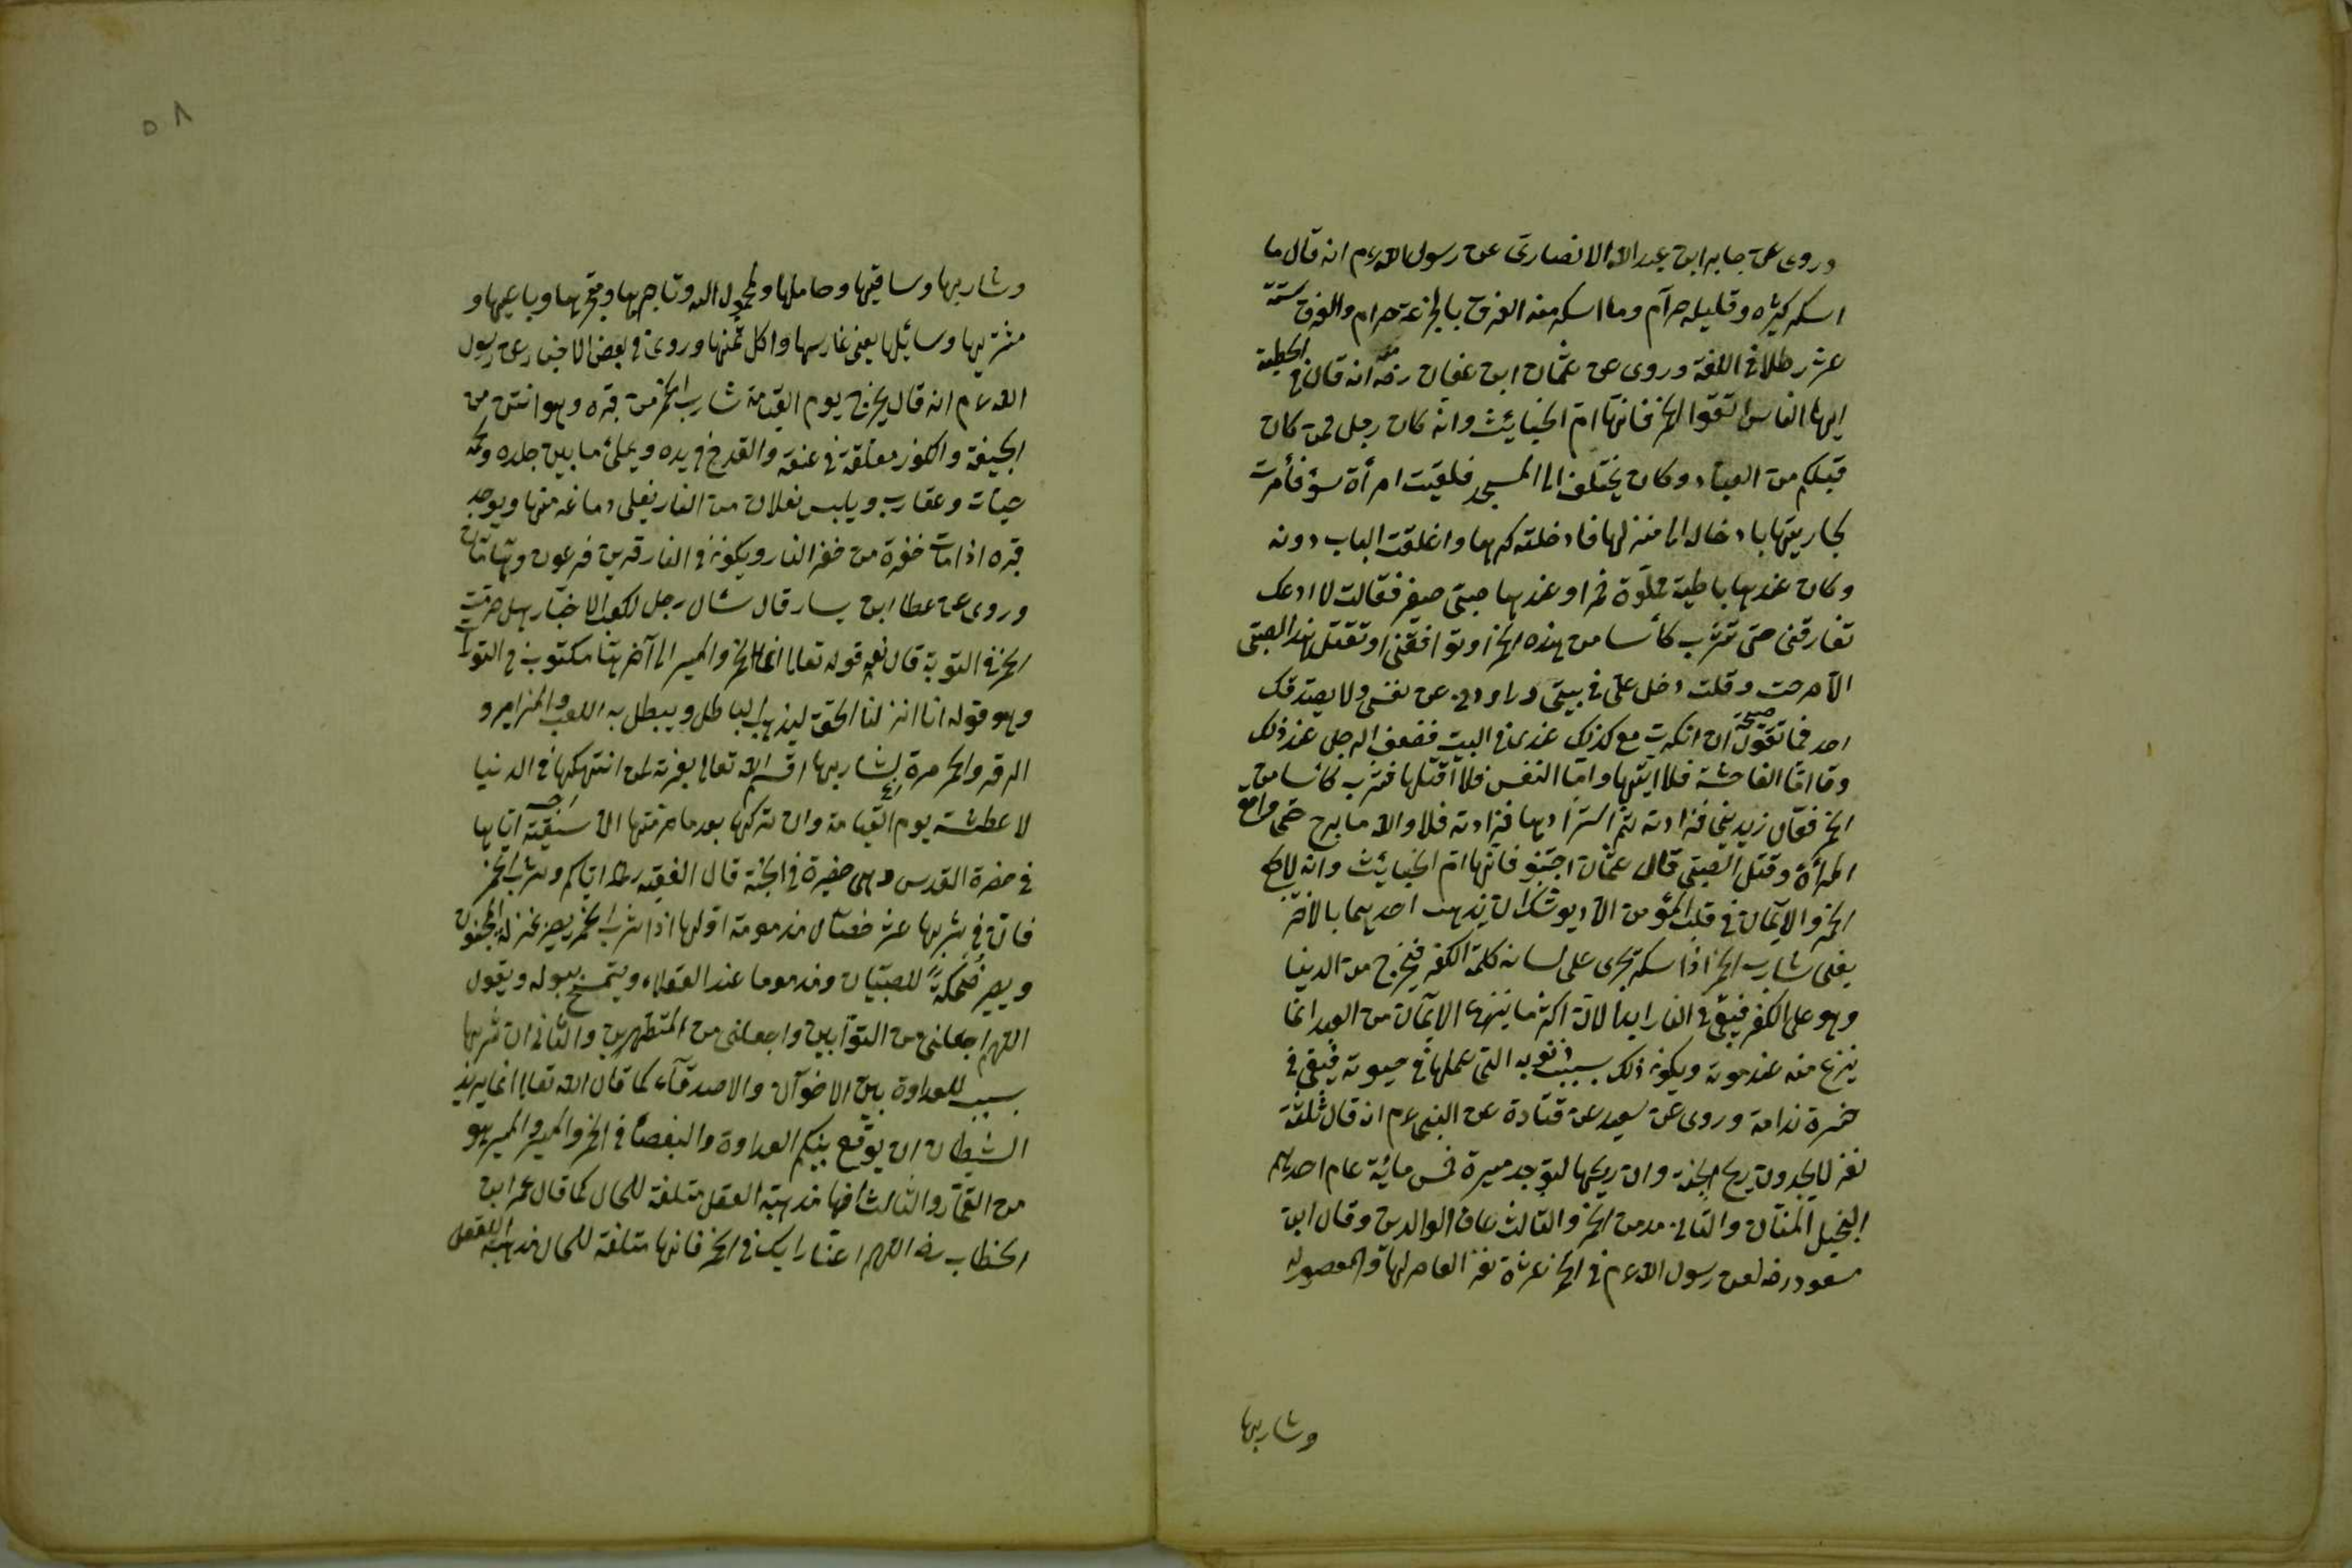 وروى عن جابر ابن عبد الله الانصارى عن رسول الله ءم انه قال ما
اسكر كثيره وقليله حرآم وما اسكر منه الفرق بالجرعة حرام والفرق ستة
عشر رطلا فى اللغة وروى عن عثمان ابن عفان رضه انه قال فى الخطبة
ايها الناس اتقوا الخمر فانها ام الخبايث وانه كان رجل فمن كان
قبلكم من العباد وكان يختلف الى المسجد فلقيت امرأة سؤ فأمرت
بجاريتها بادخاله الى منزلها فادخلته كرها واغلقت الباب دونه
وكان عندها باطية مملوّة خمرا وعندها صبى صغير فقالت لا ادعك
تفارقنى حتى تشرب كأسا من هذه الخمر او توافقنى او تقتل هذا الصبى
الا صرحت وقلت دخل علىّ فى بيتى وراودنى عن نفسى ولا يصدقك
احد فما تقول ان انكرت مع كذلك عندى فى البيت فضعف الرجل عند ذلك
وقا امّا الفاحشة فلا ايتها وامّا النفس فلا اقتلها فشرب كأسا من
الخمر فقال زيدينى فزادته ثم استزادها فزادته فلا والله ما برح حتى واقع
المرأة وقتل الصبى قال عثمان اجتنبو فانها ام الخبايث وانه لا يجمع
الخمر والايمان فى قلب المؤمن الا ويوشك ان يذهب احديهما بالاخر
يعنى شارب الخمر اذا سكر تجرى على لسانه كلمة الكفر فيخرج من الدنيا
وهو على الكفر فيبقى فى النار ابدا لان اكثر ما ينزع الايمان من العبد انما
ينزع منه عند موته ويكون ذلك بسبب ذنوبه التى عملها فى حيوته فيبقى فى
حسرة ندامة وروى عن سعيد عن قتادة عن النبى ءم انه قال ثلثة
نفر لا يجدون ريح الجنة وان ريحها لتوجد مسيرة خمس مائية عام احديهم
البخيل المنان والثانى مدمن الخمر والثالث عاق الوالدين وقال ابن
مسعود رضه لعن رسول الله ءم فى الخمر عشرة نفر العاصر لها والمعصور له
وشاربها
٥٨
وشاربها وساقيها وحاملها والمحمول اليه وتاجرها وبايعها و
مشتريها وسائلها يعنى غارسها واكل ثمنها وروى فى بعض الاخبار عن رسول
الله ءم انه قال يخرج يوم القيامة شارب الخمر من قبره وهو انتن من
الجيفة والكوز معلّقة فى عنقه والقدح فى يده ويملئ ما بين جلده ولحمه
حيات وعقارب ويلبس نعلان من النار يغلى دماغه منها ويوجد
قبره اذا مات حفرة من حفر النار ويكون فى النار قرين فرعون وهامان
وروى عن عطا ابن يسار قال سئال رجل لكعب الاخبار هل حرمت
الخمر فى التورية قال نعم قوله تعالى انما الخمر والميسر الى آخرها مكتوبة فى التورات
وهو قوله انا انزلنا الحق ليذهب الباطل ويبطل به اللعب والمزامير و
الرقر والخمر مرة لشاربها اقسم الله تعالى بعزته لمن انتهكها فى الدنيا
لاعطشنه يوم القيامة وان تركها بعد ما حرمتها الا سقيته اياها
فى حضرة القدس وهى حضيرة فى الجنة قال الفقيه رحه اياكم وشرب الخمر
فان فى شربها عشر خصال مذمومة اولها اذا شرب الخمر يصير بمنزلة المجنون
ويصير ضحكة للصبيان ومذموما عند العقلاء ويتمسح ببوله ويقول
اللهم اجعلنى من التوابين واجعلنى من المتطهرين والثانى ان شربها
سبب للعداوة بين الاخوآن والاصدقآء كما قال الله تعالى انما يريد
الشيطان ان يوقع بينكم العداوة والبغضاء فى الخمر والميسر والميسر هو
من القمار والثالث انها مذهبة العقل متلفة للمال كما قال عمر ابن
الخطاب رضه اللهم ارنا رايك فى الخمر فانها متلفة للمال مذهبة للعقل